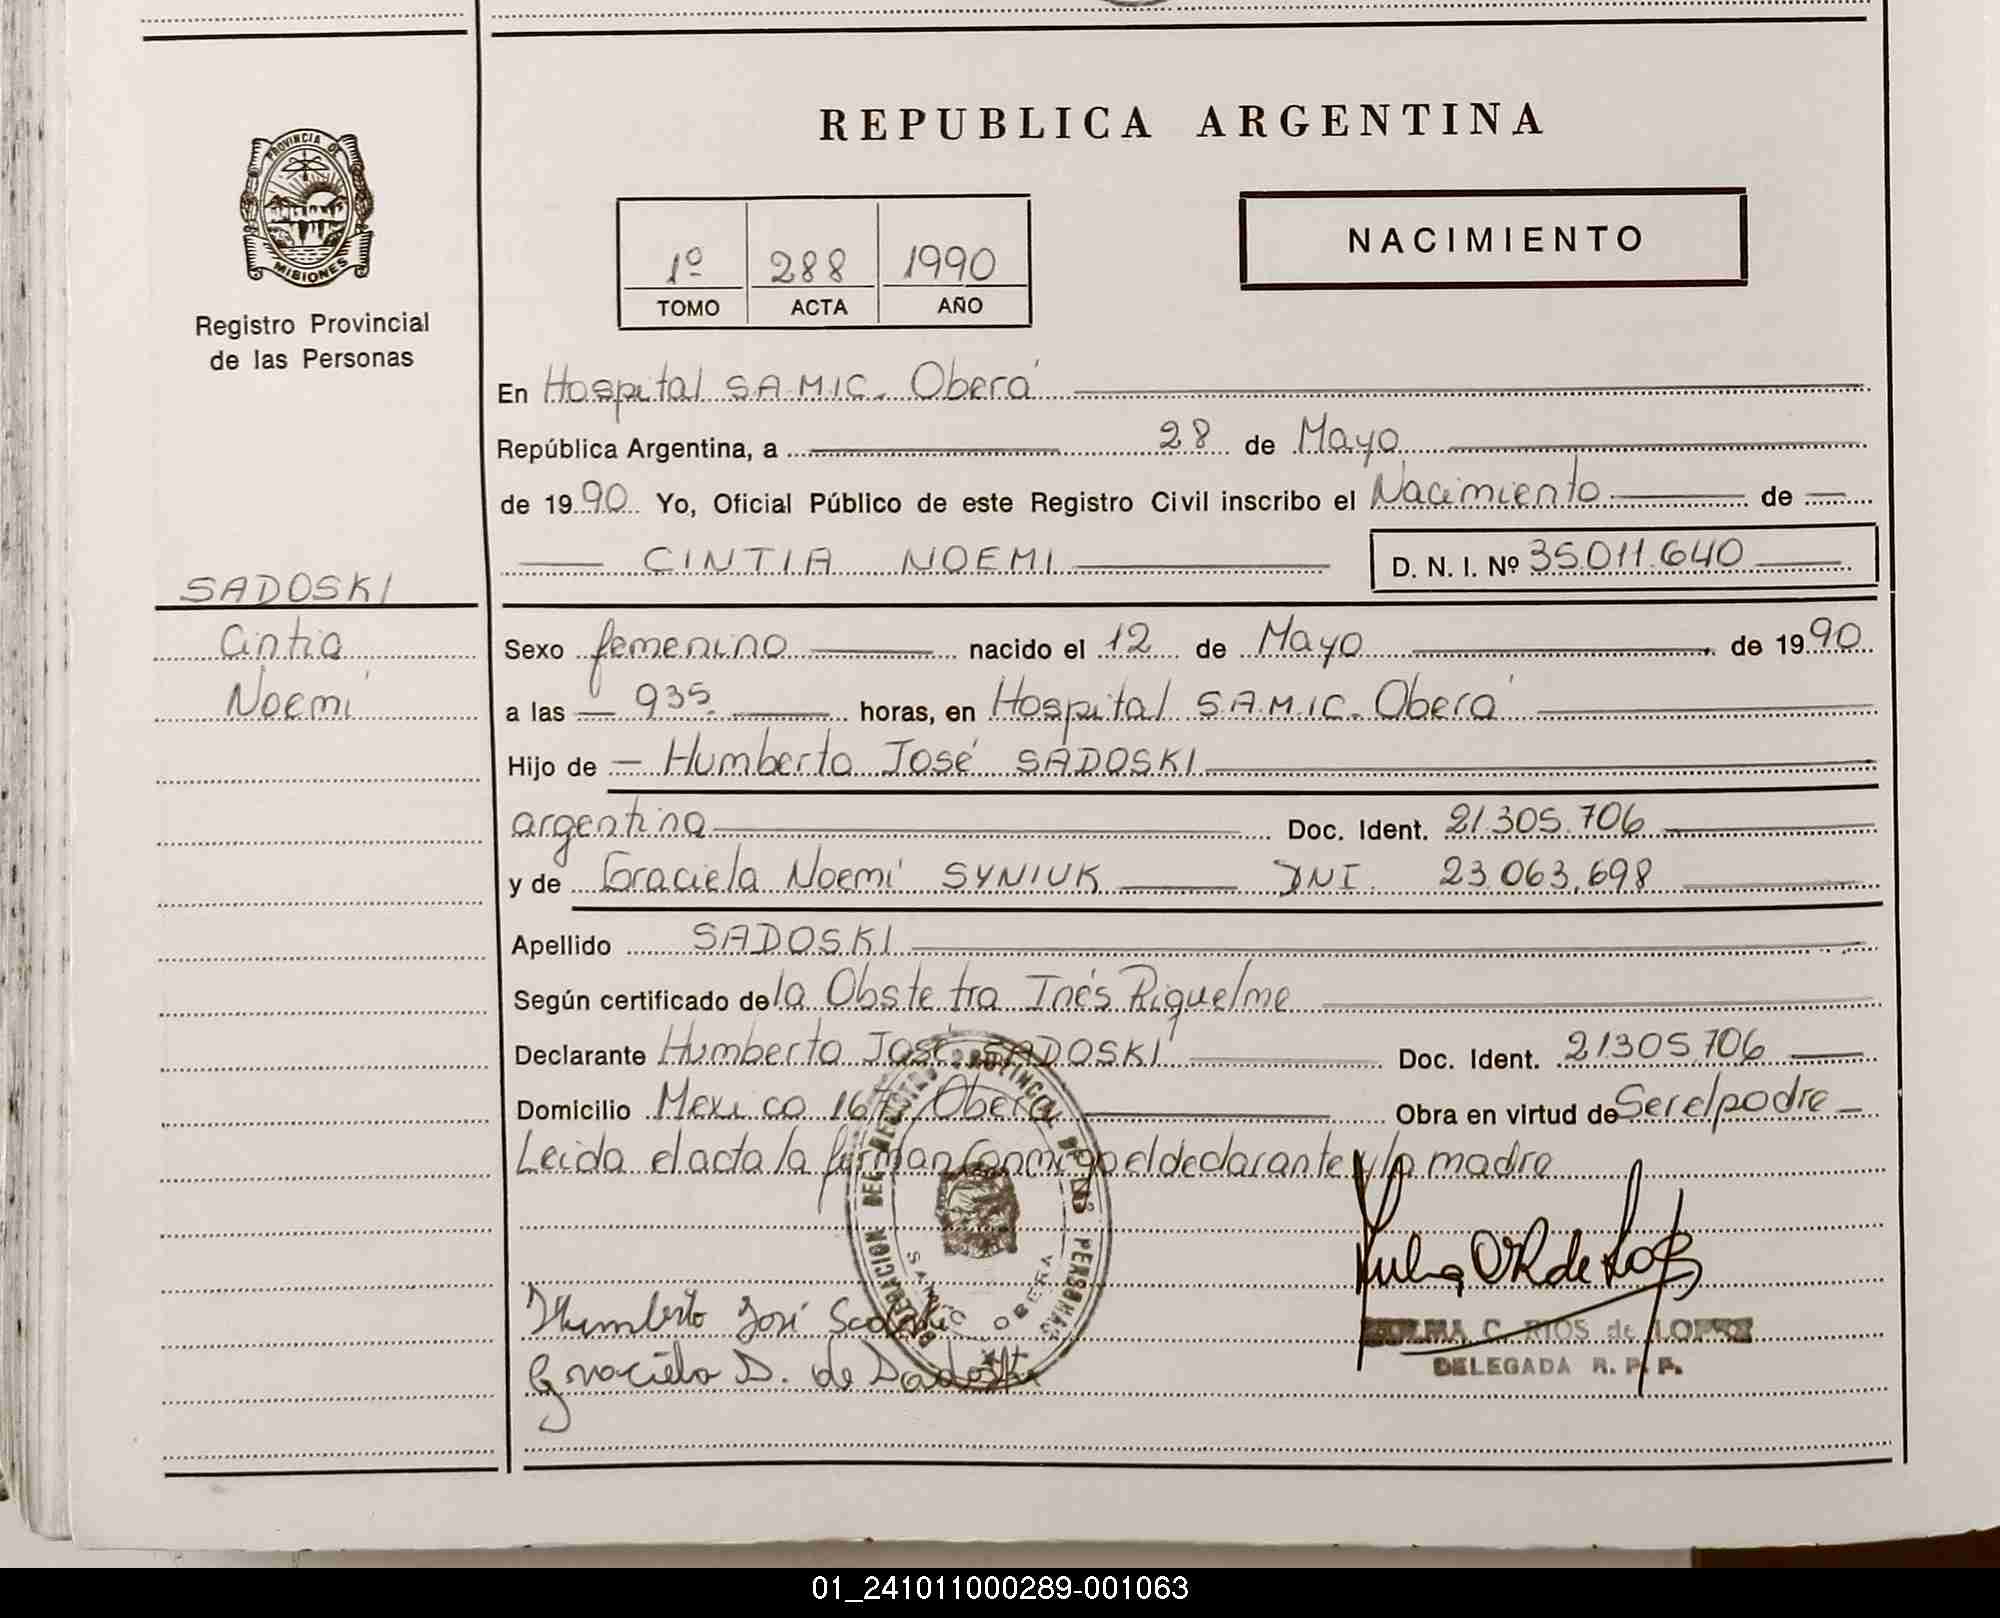 REPUBLICA ARGENTINA
PROVINCIA DE
MISIONES
Registro Provincial
de las Personas
1º 288 1990
TOMO ACTA AÑO
NACIMIENTO
En Hospital S.A.M.I.C. Oberá
República Argentina, a 28 de Mayo
de 1990 Yo, Oficial Público de este Registro Civil inscribo el Nacimiento de
CINTIA NOEMI D. N. I. Nº 35.011.640
SADOSKI
Cintia
Noemí
Sexo femenino nacido el 12 de Mayo de 1990
a las 935 horas, en Hospital S.A.M.I.C. Oberá
Hijo de Humberto José SADOSKI
argentina Doc. Ident. 21.305.706
y de Graciela Noemí SYNIUK DNI. 23.063.698
Apellido SADOSKI
Según certificado de la Obstetra Inés Riquelme
Declarante Humberto José SADOSKI Doc. Ident. 21305706
Domicilio Mexico Oberá Obra en virtud de Ser el padre
Leida el acta la firman conmigo el declarante y la madre
DELEGACION DEL REGISTRO PROVINCIAL DE LAS PERSONAS
SAMIC OBERA
Humberto José Sadoski
Graciela S. de Sadoski
C. RIOS de LOPEZ
DELEGADA R. P. P.
01_241011000289-001063